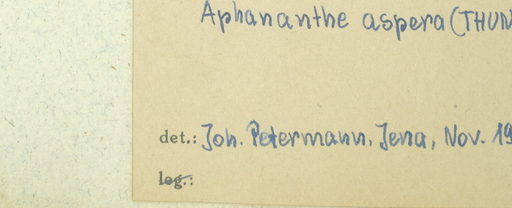 Aphananthe aspera (THUN
det.: Joh. Petermann, Jena, Nov. 19
leg.: